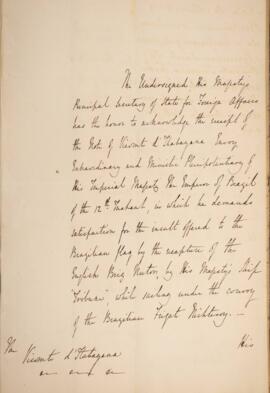 The Undersigned His Majesty's
Principal Secretary of State for Foreign Affairs
has the honor to acknowledge the receipt of
the Note of Viscount d'Itabayana Envoy
Extraordinary and Minister Plenipotentiary of
His Imperial Majesty The Emperor of Brazil
of the 12th Instant, in which he demands
satisfaction for the insult offered to the
Brazilian flag by the recapture of the
English Brig by His Majesty's Ship
"Tribune", whilst sailing under the convoy
of the Brazilian Frigate Nichteroy. —
The Viscount d'Itabayana
His